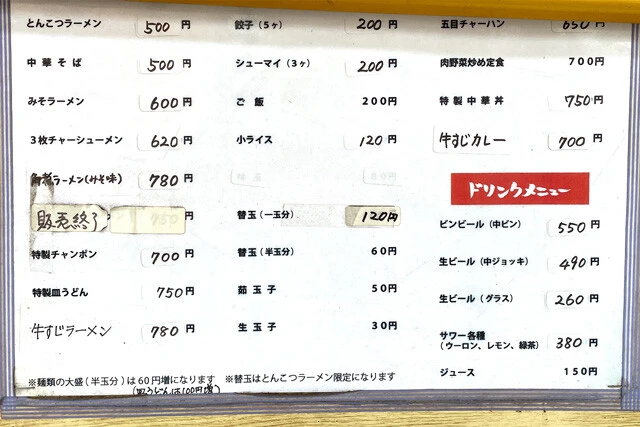 とんこつラーメン 500円
中華そば 500円
みそラーメン 600円
3枚チャーシューメン 620円
角煮ラーメン(みそ味) 780
販売終了 750
特製チャンポン 700円
特製皿うどん 750円
牛すじラーメン 780円
餃子(5ヶ) 200円
シューマイ(3ヶ) 200円
ご飯 200円
小ライス 120円
80円
替玉(一玉分) 120円
替玉(半玉分) 60円
茹玉子 50円
生玉子 30円
五目チャーハン 650円
肉野菜炒め定食 700円
特製中華丼 750円
牛すじカレー 700円
ドリンクメニュー
ビンビール(中ビン) 550円
生ビール(中ジョッキ) 490円
生ビール(グラス) 260円
サワー各種
(ウーロン、レモン、緑茶) 380円
ジュース 150円
※麺類の大盛(半玉分)は60円増になります ※替玉はとんこつラーメン限定になります
(皿うどんは100円増)